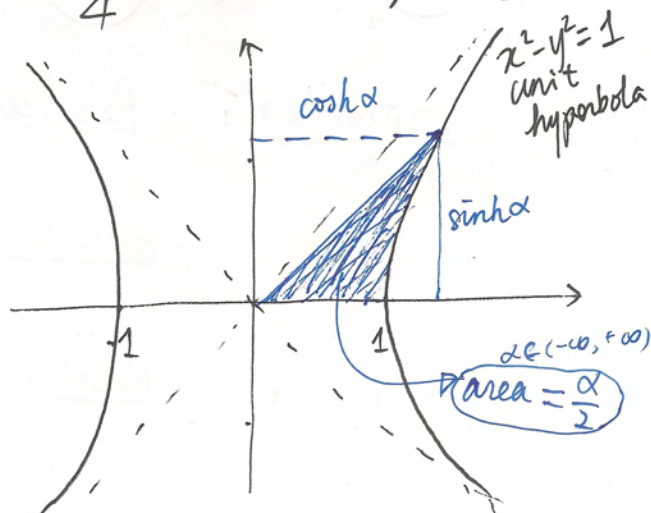 4
x²-y²=1
unit
hyperbola
coshα
sinhα
-1
1
α∈(-∞,+∞)
area = α/2